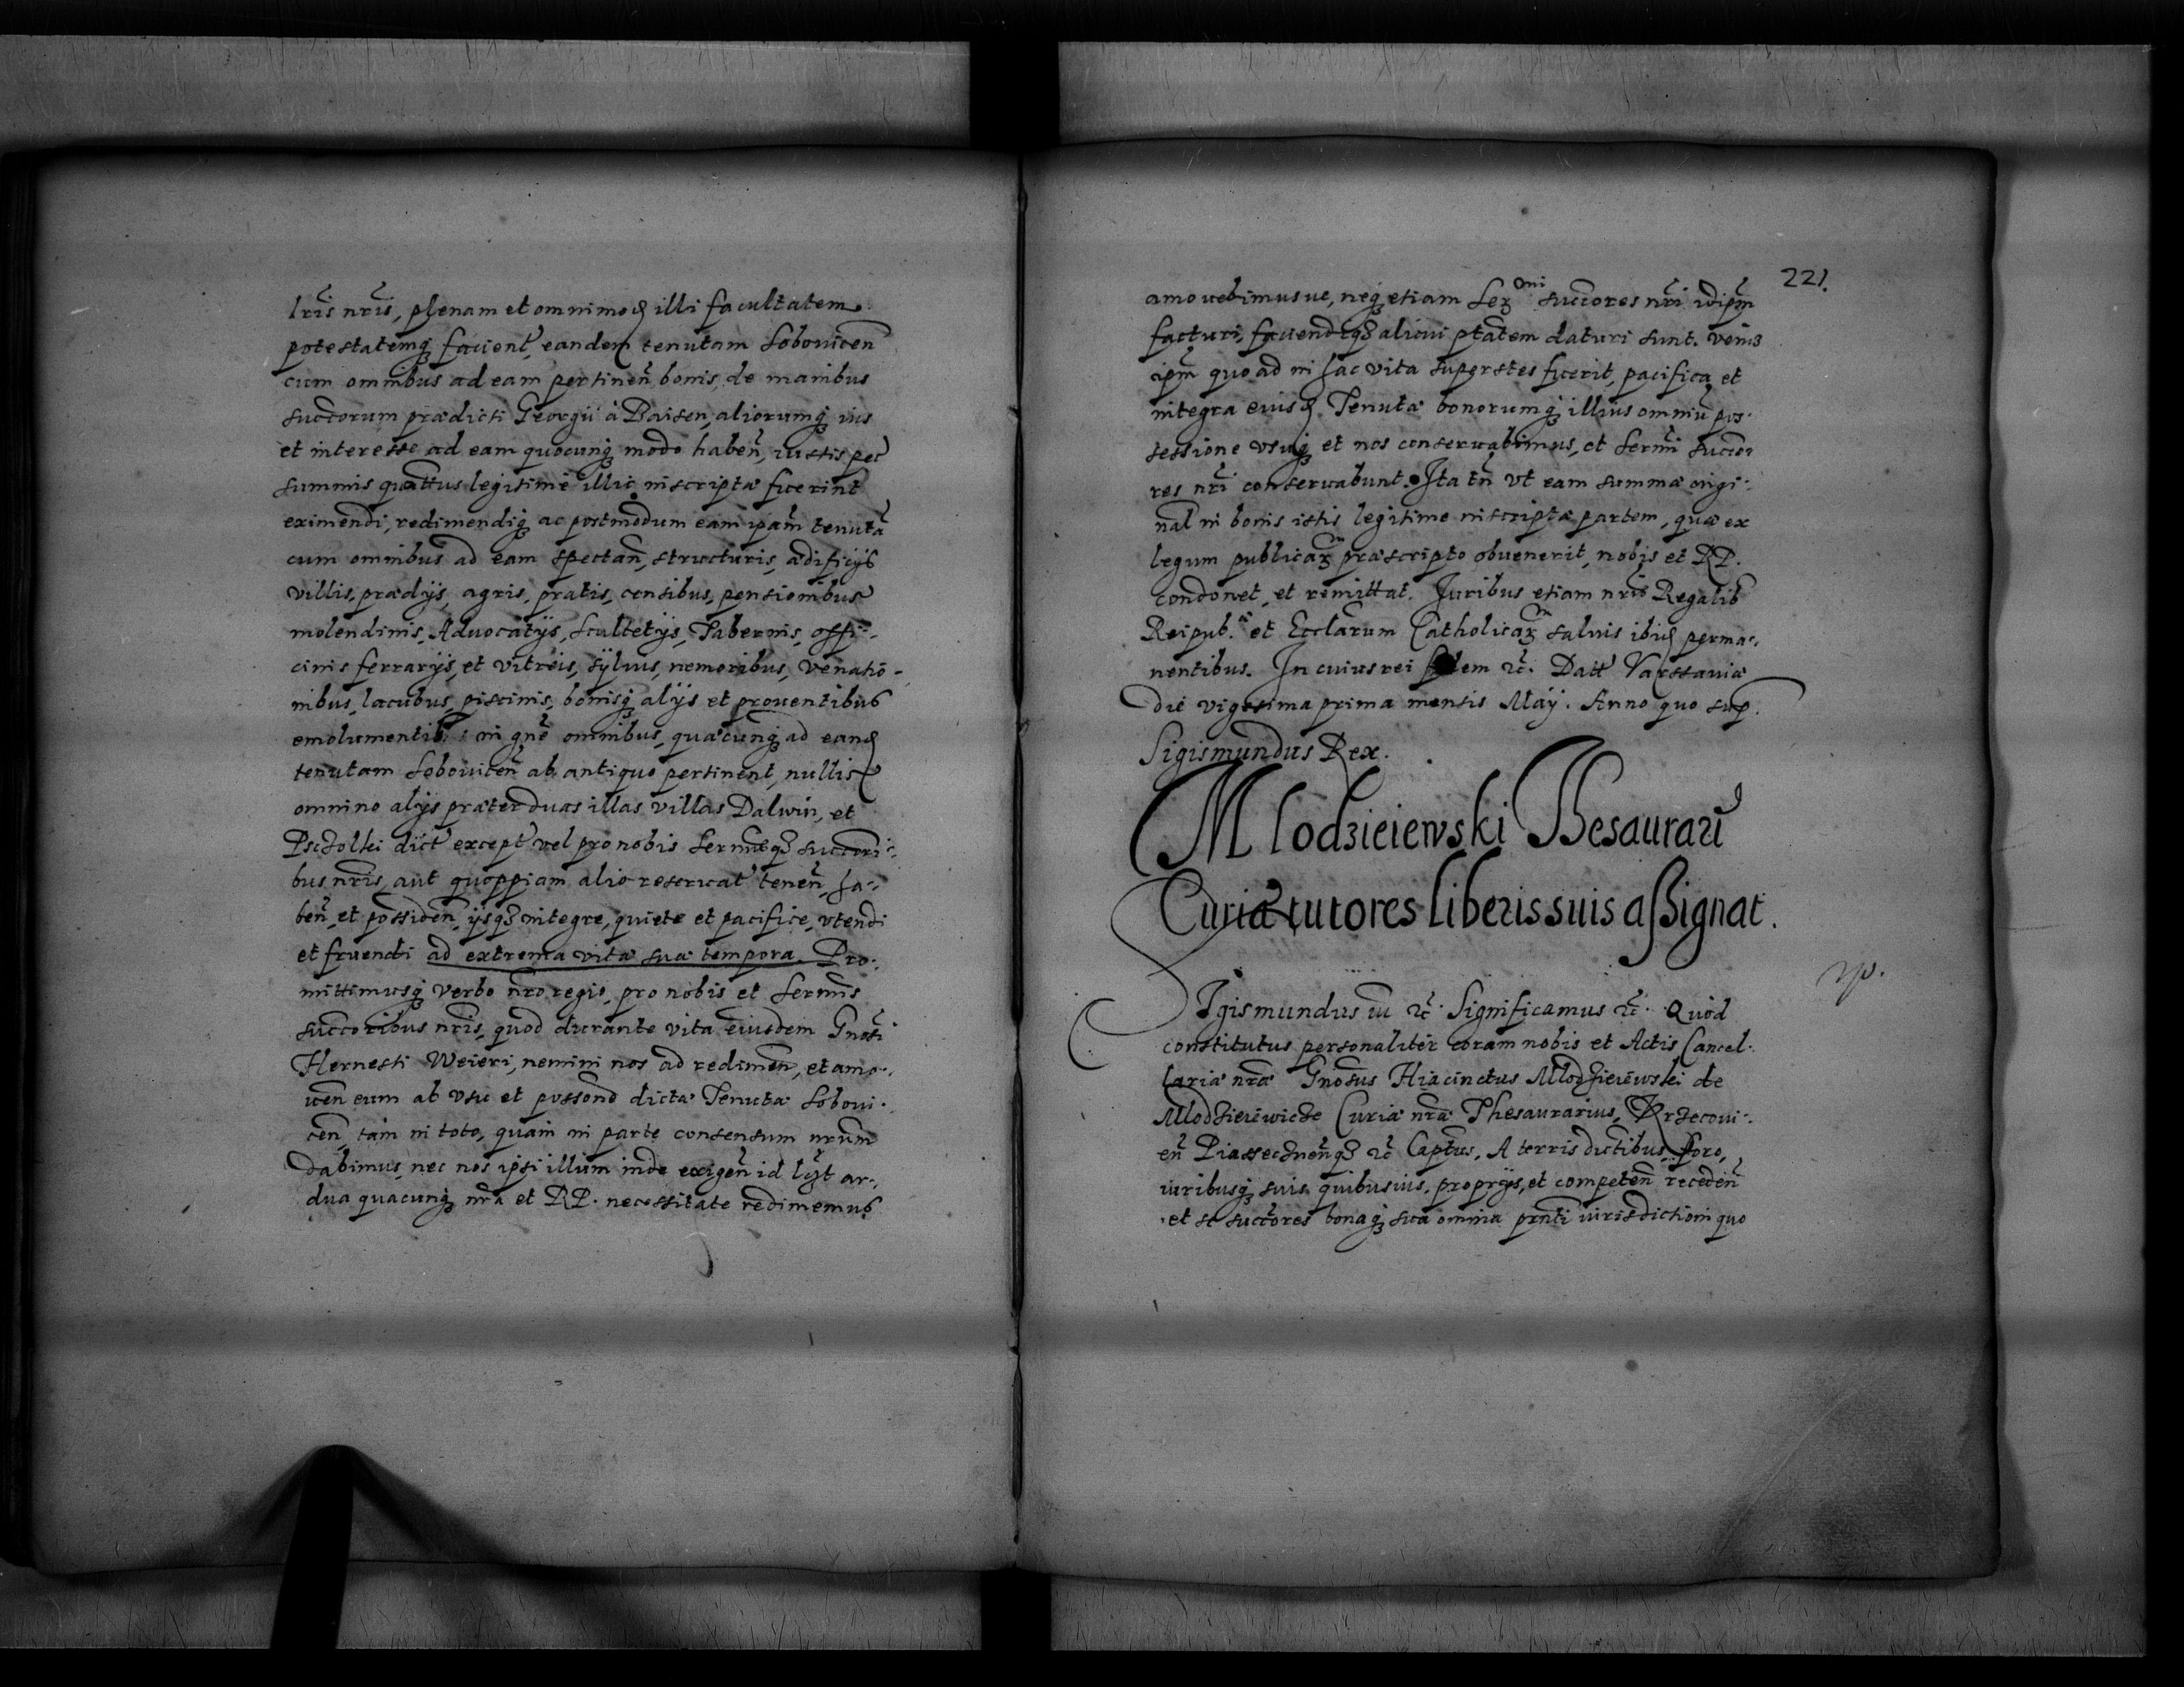 lris nris, plenam et omnimod illi facultatem
potestatemq facient, eandem tenutam Sobouicen
cum omnibus ad eam pertinen bonis, de manibus
succorum prædicti Georgii à Baisen, aliorumq ius
et interesse ad eam quocunq modo haben, iustis per
summis quattus legitime illic inscriptæ fuerint
eximendi, redimendiq ac postmodum eam ipam tenuta
cum omnibus ad eam spectan, structuris, ædificijs
villis, prædijs, agris, pratis, censibus, pensionibus
molendinis, Advocatijs, Scultetijs, Tabernis, offi-
cinis ferrarijs, et vitreis, sÿluis, nemoribus, Venatio-
nibus, lacubus, piscinis, bonisq alijs et prouentibus
emolumentis in gne omnibus, quæcunq ad eand
tenutam Sobouicen ab antiquo pertinent, nullis
omnino alijs præter duas illas villas Dalwin, et
dict except vel pro nobis Sermisq succori-
bus nris, aut quoppiam alio reseruat tenen, ha-
ben, et possiden, ijsq integre, quiete et pacifice, vtendi
et fruendi ad extrema vitæ suæ tempora. Pro-
mittimusq verbo nro regio, pro nobis et Sermis
succoribus nris, quod durante vita eiusdem Gnosi
Hernesti Weieri, nemini nos ad redimen, et amo-
uen eum ab vsu et possono dictæ Tenutæ Soboui-
cen, tam in toto, quam in parte consensum nrum
dabimus, nec nos ipsi illum inde exigen id lyt ar-
dua quacunq nra et RP. necessitate redimemus
221.
amouebimusue, neq etiam Ser succores nri idipm
facturi, faciendiq alicui ptatem daturi sunt. Verius
ipm quoad in hac vita superstes fuerit, pacifica et
integra eiusd Tenutæ bonorumq illius omniu pos-
sessione vsuq et nos conseruabimus, et Sermi succo-
res nri conseruabunt. Ita tn vt eam summæ origi-
nal in bonis istis legitime inscriptæ partem, quæ ex
legum publicar præscripto obuenerit, nobis et RP.
condonet, et remittat. Juribus etiam nris Regalib
Reipub. et Ecclarum Catholicar saluis ibid perma-
nentibus. In cuius rei fidem &c. Datt Varssauiæ
die vigesima prima mensis Maÿ. Anno quo sup.
Sigismundus Rex.
Mlodzieiewski Thesaurari
Curiæ tutores liberis suis assignat.
Sigismundus iii &c. Significamus &c. Quod
constitutus personaliter coram nobis et Actis Cancel-
lariæ nræ Gnosus Hiacinctus Mlodzieiewski de
Mlodzieiewicze Curiæ nræ Thesaurarius, Krzecoui-
en Piasecznenq &c Captus, A terris dictibus, foro,
iuribusq suis quibusuis, proprijs, et competen receden
et se succores bonaq sua omnia prnti iurisdictioni quo